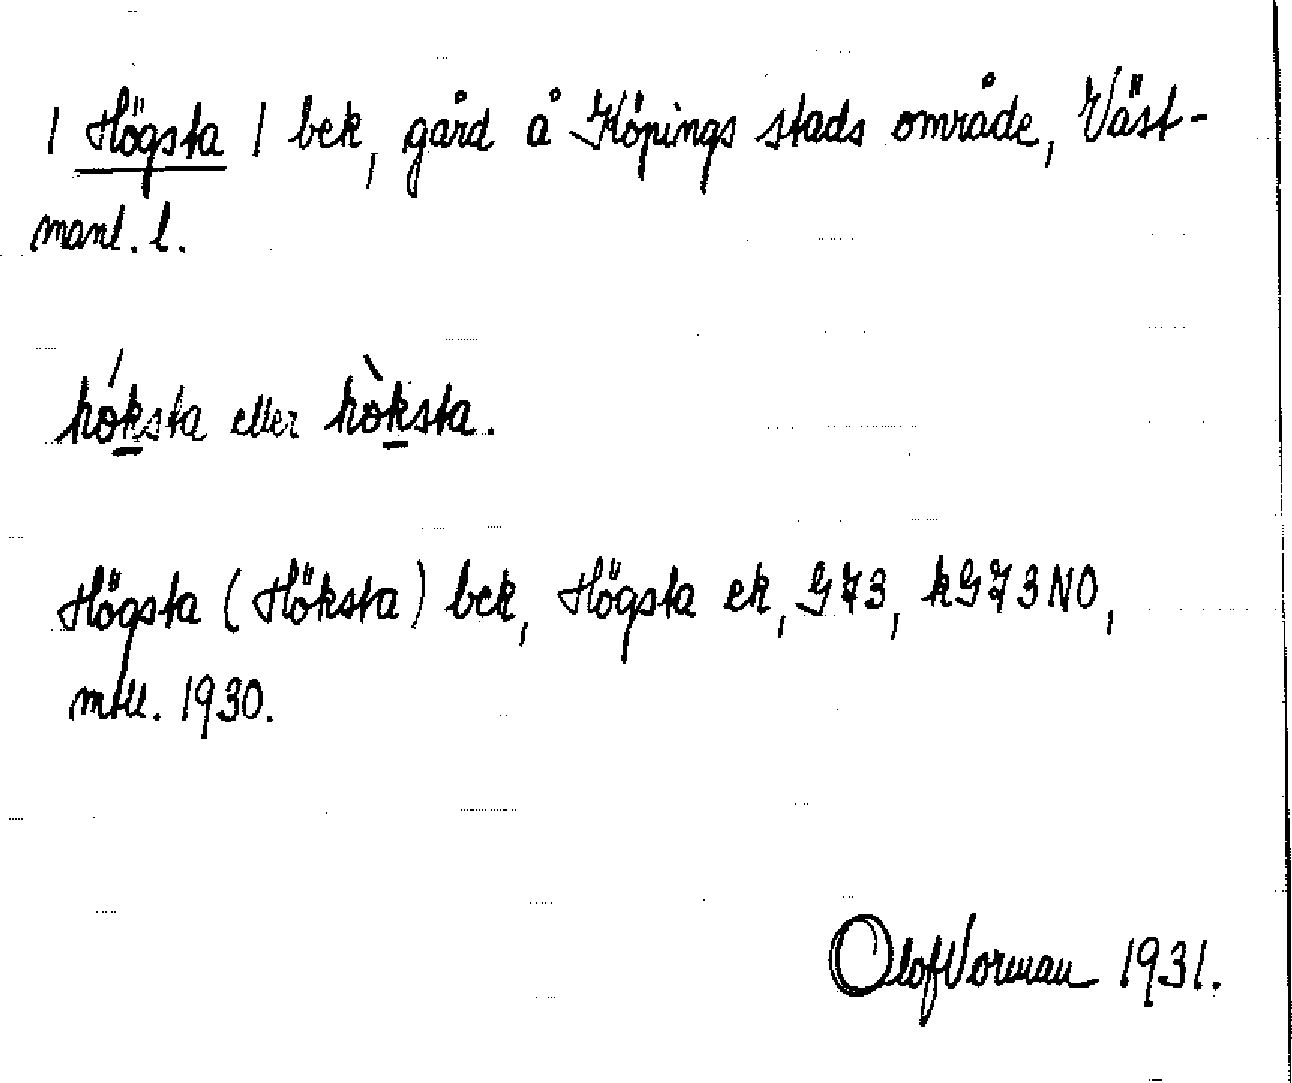 | Högsta | bek, gård å Köpings stads område, Väst-
manl. l.
hóksta eller hòksta.
Högsta (Höksta) bek, Högsta ek, G73, kG73NO,
mtll. 1930.
Olof Vorman 1931.